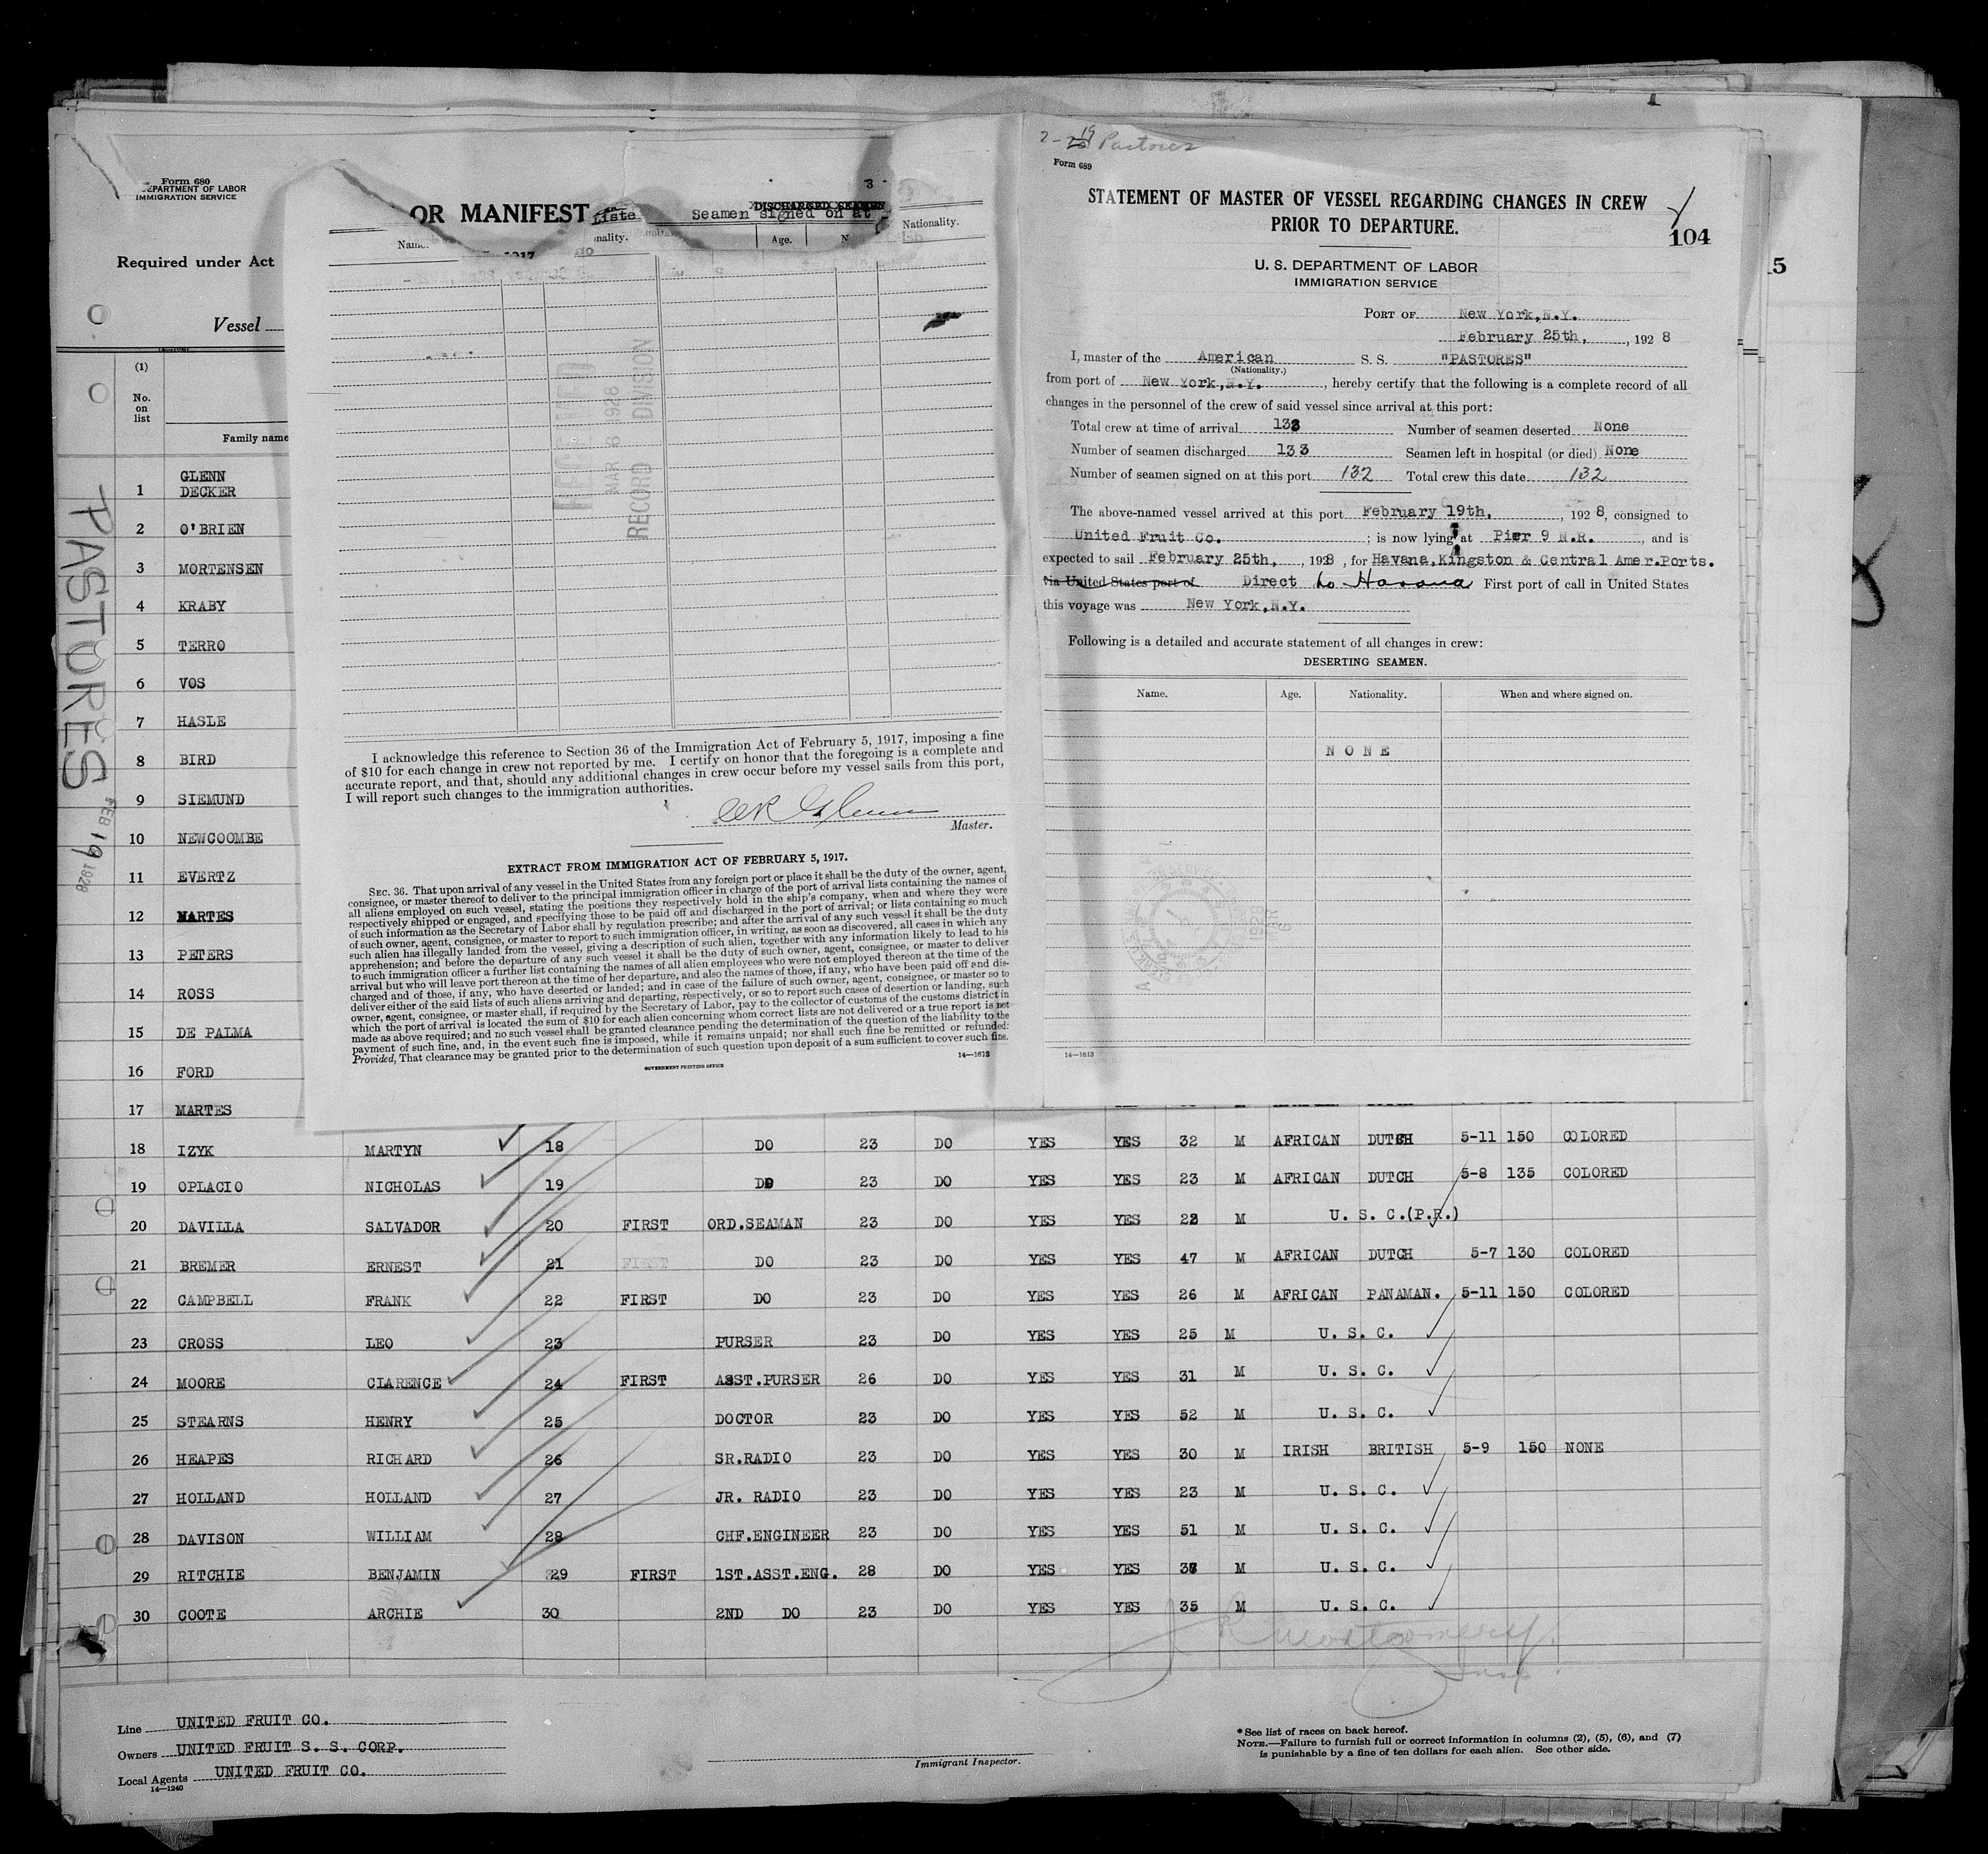 Form 680
DEPARTMENT OF LABOR
IMMIGRATION SERVICE
OR MANIFEST
Required under Act
1917
Vessel
(1)
No.
on
list
Family name
PASTORES
FEB 19 1928
3
Liste
DISCHARGED SEAMEN
Seamen signed on at
Name.
nality.
Age.
N
Nationality.
RECEIVED
MAR 6 1928
RECORD DIVISION
I acknowledge this reference to Section 36 of the Immigration Act of February 5, 1917, imposing a fine
of $10 for each change in crew not reported by me. I certify on honor that the foregoing is a complete and
accurate report, and that, should any additional changes in crew occur before my vessel sails from this port,
I will report such changes to the immigration authorities.
Glenn
Master.
EXTRACT FROM IMMIGRATION ACT OF FEBRUARY 5, 1917.
SEC. 36. That upon arrival of any vessel in the United States from any foreign port or place it shall be the duty of the owner, agent,
consignee, or master thereof to deliver to the principal immigration officer in charge of the port of arrival lists containing the names of
all aliens employed on such vessel, stating the positions they respectively hold in the ship's company, when and where they were
respectively shipped or engaged, and specifying those to be paid off and discharged in the port of arrival; or lists containing so much
of such information as the Secretary of Labor shall by regulation prescribe; and after the arrival of any such vessel it shall be the duty
of such owner, agent, consignee, or master to report to such immigration officer, in writing, as soon as discovered, all cases in which any
such alien has illegally landed from the vessel, giving a description of such alien, together with any information likely to lead to his
apprehension; and before the departure of any such vessel it shall be the duty of such owner, agent, consignee, or master to deliver
to such immigration officer a further list containing the names of all alien employees who were not employed thereon at the time of the
arrival but who will leave port thereon at the time of her departure, and also the names of those, if any, who have been paid off and dis-
charged and of those, if any, who have deserted or landed; and in case of the failure of such owner, agent, consignee, or master so to
deliver either of the said lists of such aliens arriving and departing, respectively, or so to report such cases of desertion or landing, such
owner, agent, consignee, or master shall, if required by the Secretary of Labor, pay to the collector of customs of the customs district in
which the port of arrival is located the sum of $10 for each alien concerning whom correct lists are not delivered or a true report is not
made as above required; and no such vessel shall be granted clearance pending the determination of the question of the liability to the
payment of such fine, and, in the event such fine is imposed, while it remains unpaid; nor shall such fine be remitted or refunded:
Provided, That clearance may be granted prior to the determination of such question upon deposit of a sum sufficient to cover such fine.
14—1613
GOVERNMENT PRINTING OFFICE
2- 19 Pastores
Form 689
STATEMENT OF MASTER OF VESSEL REGARDING CHANGES IN CREW
PRIOR TO DEPARTURE.
104
5
U. S. DEPARTMENT OF LABOR
IMMIGRATION SERVICE
PORT OF New York,N.Y.
February 25th, , 1928
I, master of the American S. S. "PASTORES"
(Nationality.)
from port of New York,N.Y. , hereby certify that the following is a complete record of all
changes in the personnel of the crew of said vessel since arrival at this port:
Total crew at time of arrival 133 Number of seamen deserted None
Number of seamen discharged 133 Seamen left in hospital (or died) None
Number of seamen signed on at this port 132 Total crew this date 132
The above-named vessel arrived at this port February 19th, , 1928, consigned to
United Fruit Co. ; is now lying at Pier 9 N.R. , and is
expected to sail February 25th, , 1928 , for Havana,Kingston & Central Amer.Ports.
via United States port of Direct to Havana First port of call in United States
this voyage was New York,N.Y.
Following is a detailed and accurate statement of all changes in crew:
DESERTING SEAMEN.
Name. Age. Nationality. When and where signed on.
NONE
14—1613
1 GLENN
DECKER
2 O'BRIEN
3 MORTENSEN
4 KRABY
5 TERRO
6 VOS
7 HASLE
8 BIRD
9 SIEMUND
10 NEWCOOMBE
11 EVERTZ
12 MARTES
13 PETERS
14 ROSS
15 DE PALMA
16 FORD
17 MARTES
18 IZYK MARTYN 18 DO 23 DO YES YES 32 M AFRICAN DUTCH 5-11 150 COLORED
19 OPLACIO NICHOLAS 19 DO 23 DO YES YES 23 M AFRICAN DUTCH 5-8 135 COLORED
20 DAVILLA SALVADOR 20 FIRST ORD.SEAMAN 23 DO YES YES 23 M U. S. C.(P.R.)
21 BREMER ERNEST 21 FIRST DO 23 DO YES YES 47 M AFRICAN DUTCH 5-7 130 COLORED
22 CAMPBELL FRANK 22 FIRST DO 23 DO YES YES 26 M AFRICAN PANAMAN. 5-11 150 COLORED
23 CROSS LEO 23 PURSER 23 DO YES YES 25 M U. S. C.
24 MOORE CLARENCE 24 FIRST ASST.PURSER 26 DO YES YES 31 M U. S. C.
25 STEARNS HENRY 25 DOCTOR 23 DO YES YES 52 M U. S. C.
26 HEAPES RICHARD 26 SR.RADIO 23 DO YES YES 30 M IRISH BRITISH 5-9 150 NONE
27 HOLLAND HOLLAND 27 JR. RADIO 23 DO YES YES 23 M U. S. C.
28 DAVISON WILLIAM 28 CHF.ENGINEER 23 DO YES YES 51 M U. S. C.
29 RITCHIE BENJAMIN 29 FIRST 1ST.ASST.ENG. 28 DO YES YES M U. S. C.
30 COOTE ARCHIE 30 2ND DO 23 DO YES YES 35 M U. S. C.
Montgomery
Insp.
Line UNITED FRUIT CO.
Owners UNITED FRUIT S. S. CORP.
Local Agents UNITED FRUIT CO.
14—1240
Immigrant Inspector.
* See list of races on back hereof.
NOTE.—Failure to furnish full or correct information in columns (2), (5), (6), and (7)
is punishable by a fine of ten dollars for each alien. See other side.